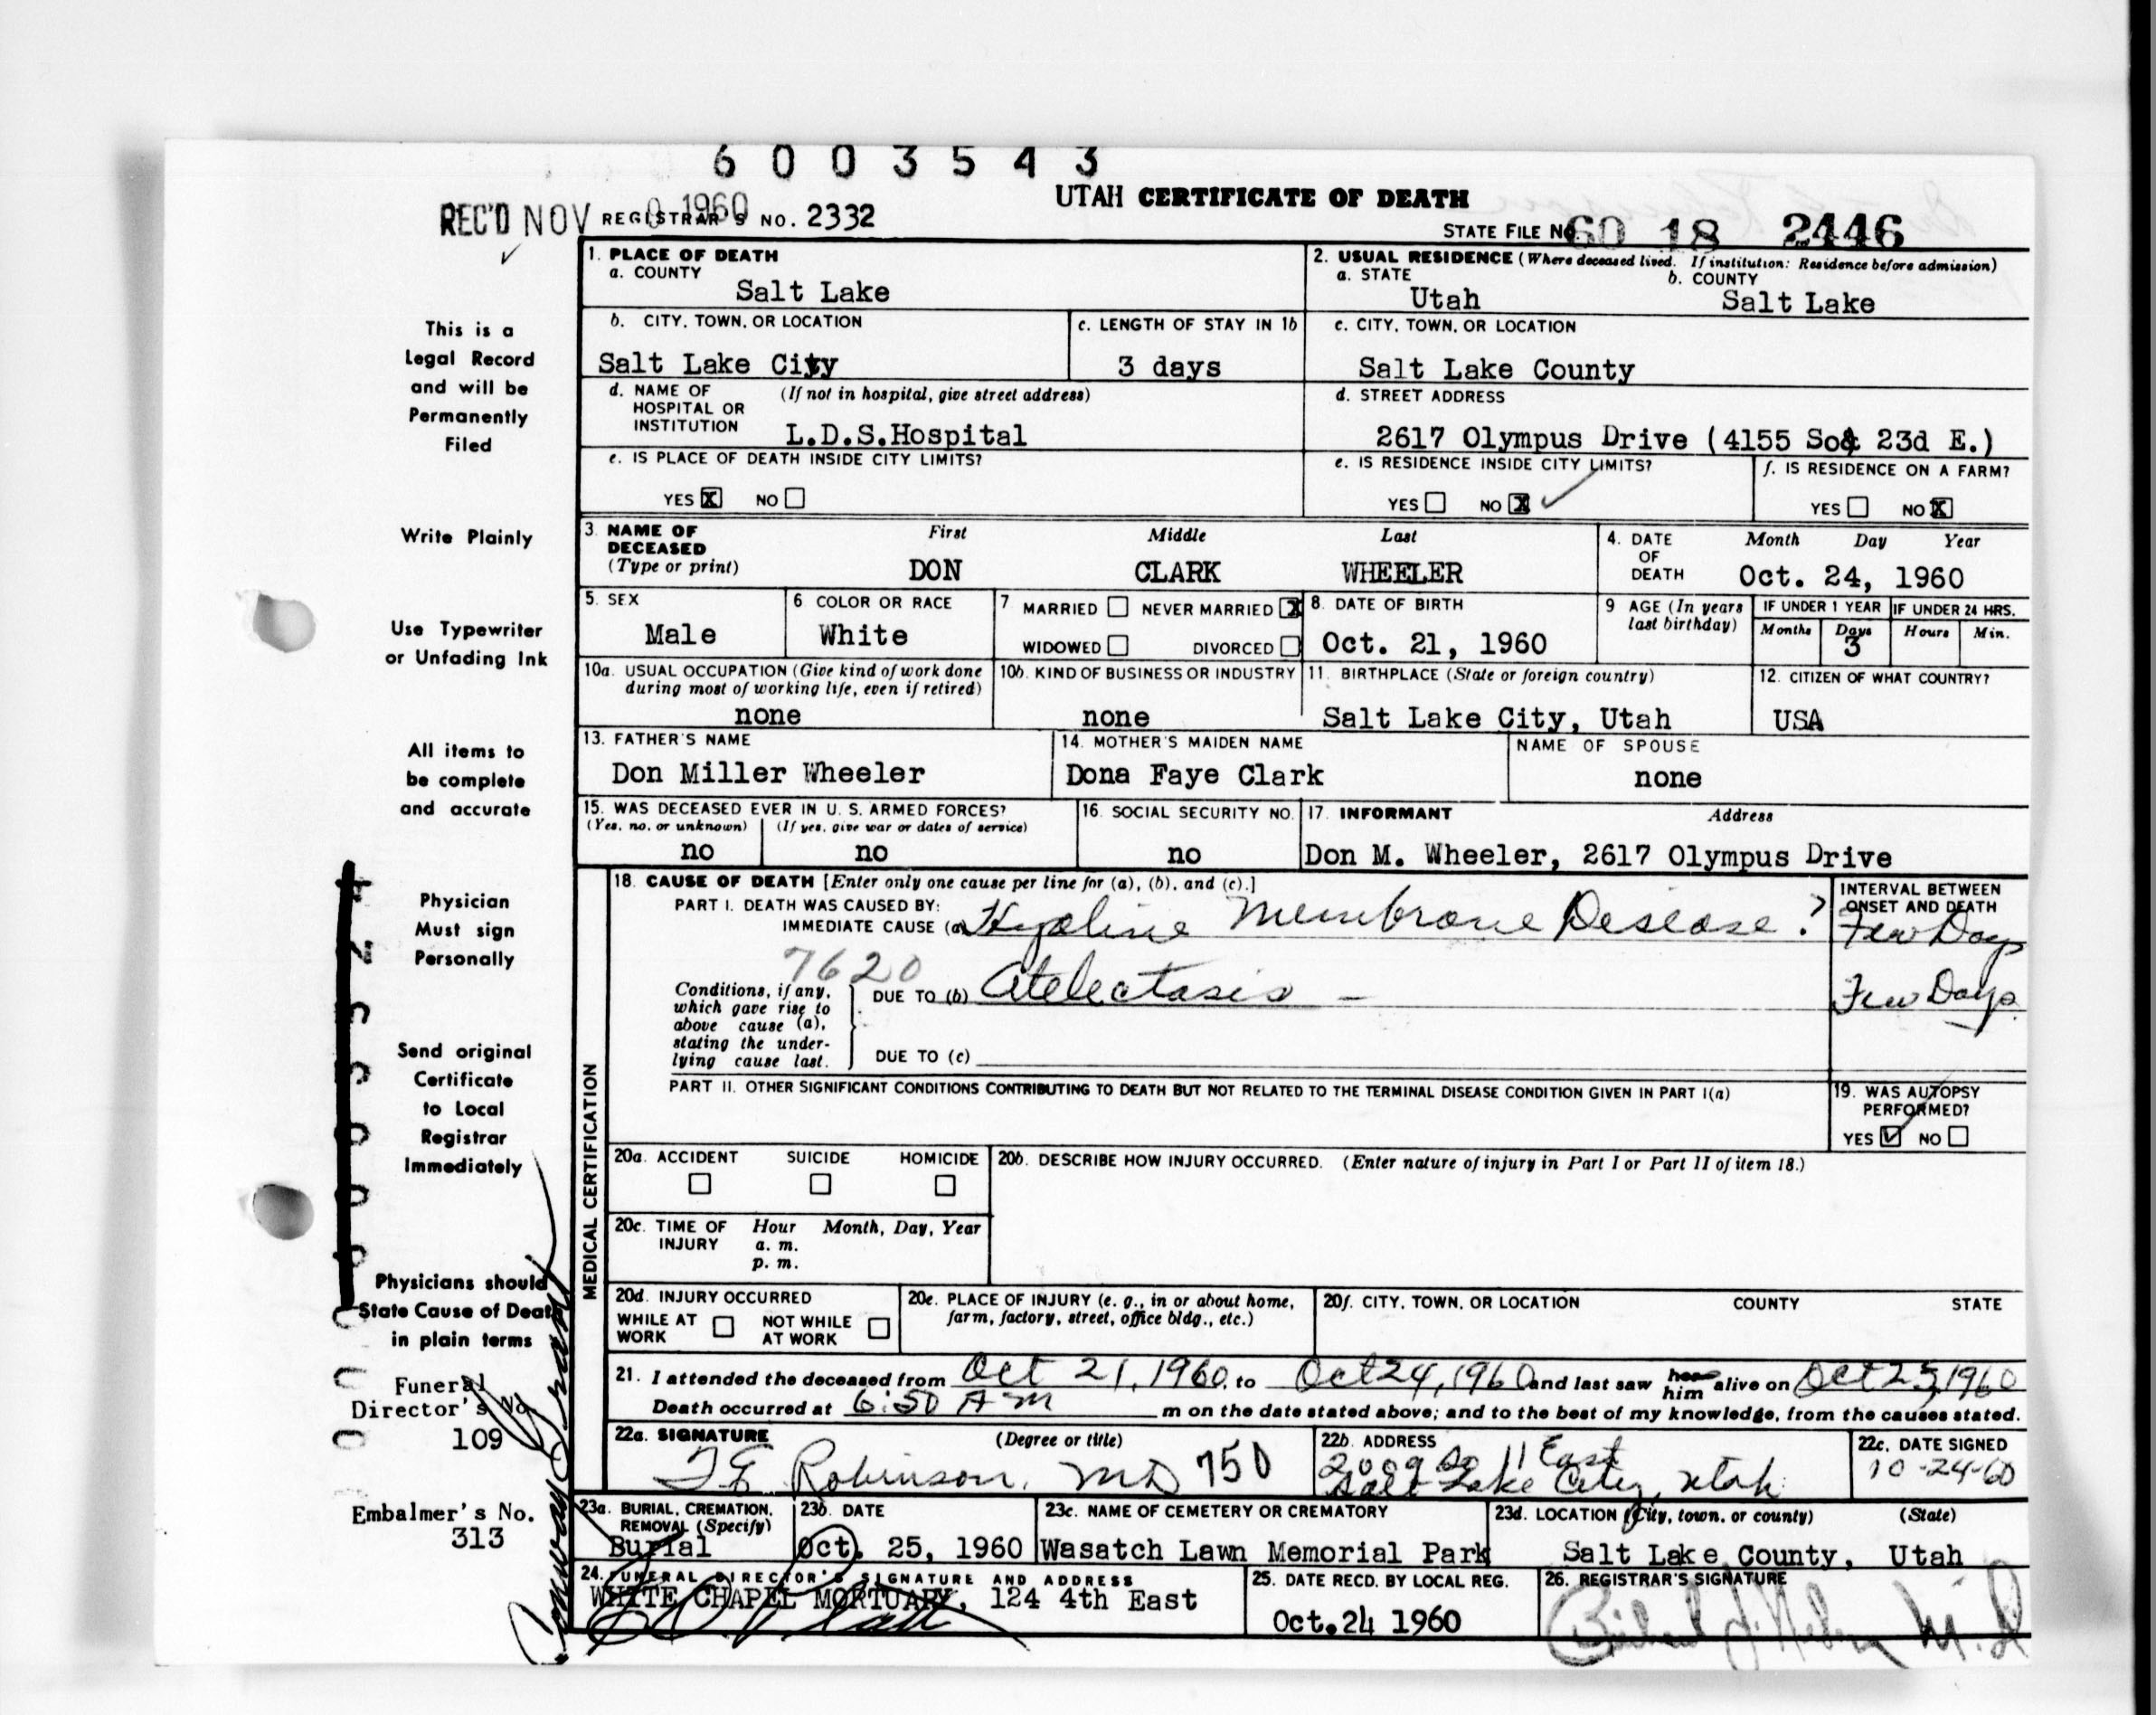 6 0 0 3 5 4 3
UTAH CERTIFICATE OF DEATH
REC'D NOV 1960 REGISTRAR'S NO. 2332
STATE FILE NO. 60 18 2446
This is a
Legal Record
and will be
Permanently
Filed
Write Plainly
Use Typewriter
or Unfading Ink
All items to
be complete
and accurate
Physician
Must sign
Personally
Send original
Certificate
to Local
Registrar
Immediately
Physicians should
State Cause of Death
in plain terms
Funeral
Director's No.
109
Embalmer's No.
313
1. PLACE OF DEATH
a. COUNTY
Salt Lake
2. USUAL RESIDENCE (Where deceased lived. If institution: Residence before admission)
a. STATE b. COUNTY
Utah Salt Lake
b. CITY, TOWN, OR LOCATION
Salt Lake City
c. LENGTH OF STAY IN 1b
3 days
c. CITY, TOWN, OR LOCATION
Salt Lake County
d. NAME OF (If not in hospital, give street address)
HOSPITAL OR
INSTITUTION
L.D.S.Hospital
d. STREET ADDRESS
2617 Olympus Drive (4155 So& 23d E.)
e. IS PLACE OF DEATH INSIDE CITY LIMITS?
YES X NO
e. IS RESIDENCE INSIDE CITY LIMITS?
YES NO X
f. IS RESIDENCE ON A FARM?
YES NO X
3. NAME OF First Middle Last
DECEASED
(Type or print)
DON CLARK WHEELER
4. DATE Month Day Year
OF
DEATH Oct. 24, 1960
5. SEX
Male
6 COLOR OR RACE
White
7 MARRIED NEVER MARRIED X
WIDOWED DIVORCED
8. DATE OF BIRTH
Oct. 21, 1960
9 AGE (In years
last birthday)
IF UNDER 1 YEAR IF UNDER 24 HRS.
Months Days Hours Min.
3
10a. USUAL OCCUPATION (Give kind of work done
during most of working life, even if retired)
none
10b. KIND OF BUSINESS OR INDUSTRY
none
11. BIRTHPLACE (State or foreign country)
Salt Lake City, Utah
12. CITIZEN OF WHAT COUNTRY?
USA
13. FATHER'S NAME
Don Miller Wheeler
14. MOTHER'S MAIDEN NAME
Dona Faye Clark
NAME OF SPOUSE
none
15. WAS DECEASED EVER IN U. S. ARMED FORCES?
(Yes, no, or unknown) (If yes, give war or dates of service)
no no
16. SOCIAL SECURITY NO.
no
17. INFORMANT Address
Don M. Wheeler, 2617 Olympus Drive
MEDICAL CERTIFICATION
18. CAUSE OF DEATH [Enter only one cause per line for (a), (b), and (c).]
PART I. DEATH WAS CAUSED BY:
IMMEDIATE CAUSE (a) Hyaline Membrane Desease ?
INTERVAL BETWEEN
ONSET AND DEATH
Few Days
7620
Conditions, if any,
which gave rise to
above cause (a),
stating the under-
lying cause last.
DUE TO (b) Atelectasis -
Few Days
DUE TO (c)
PART II. OTHER SIGNIFICANT CONDITIONS CONTRIBUTING TO DEATH BUT NOT RELATED TO THE TERMINAL DISEASE CONDITION GIVEN IN PART I(a)
19. WAS AUTOPSY
PERFORMED?
YES NO
20a. ACCIDENT SUICIDE HOMICIDE
20b. DESCRIBE HOW INJURY OCCURRED. (Enter nature of injury in Part I or Part II of item 18.)
20c. TIME OF Hour Month, Day, Year
INJURY a. m.
p. m.
20d. INJURY OCCURRED
WHILE AT NOT WHILE
WORK AT WORK
20e. PLACE OF INJURY (e. g., in or about home,
farm, factory, street, office bldg., etc.)
20f. CITY, TOWN, OR LOCATION COUNTY STATE
21. I attended the deceased from Oct 21, 1960, to Oct 24, 1960 and last saw her him alive on Oct 23, 1960
Death occurred at 6:50 A m m on the date stated above; and to the best of my knowledge, from the causes stated.
22a. SIGNATURE (Degree or title)
Robinson, MD 750
22b. ADDRESS
2009 So 11 East
Salt Lake City, Utah
22c. DATE SIGNED
10-24-60
23a. BURIAL, CREMATION,
REMOVAL (Specify)
Burial
23b. DATE
Oct. 25, 1960
23c. NAME OF CEMETERY OR CREMATORY
Wasatch Lawn Memorial Park
23d. LOCATION (City, town, or county) (State)
Salt Lake County, Utah
24. FUNERAL DIRECTOR'S SIGNATURE AND ADDRESS
WHITE CHAPEL MORTUARY, 124 4th East
25. DATE RECD. BY LOCAL REG.
Oct.24 1960
26. REGISTRAR'S SIGNATURE